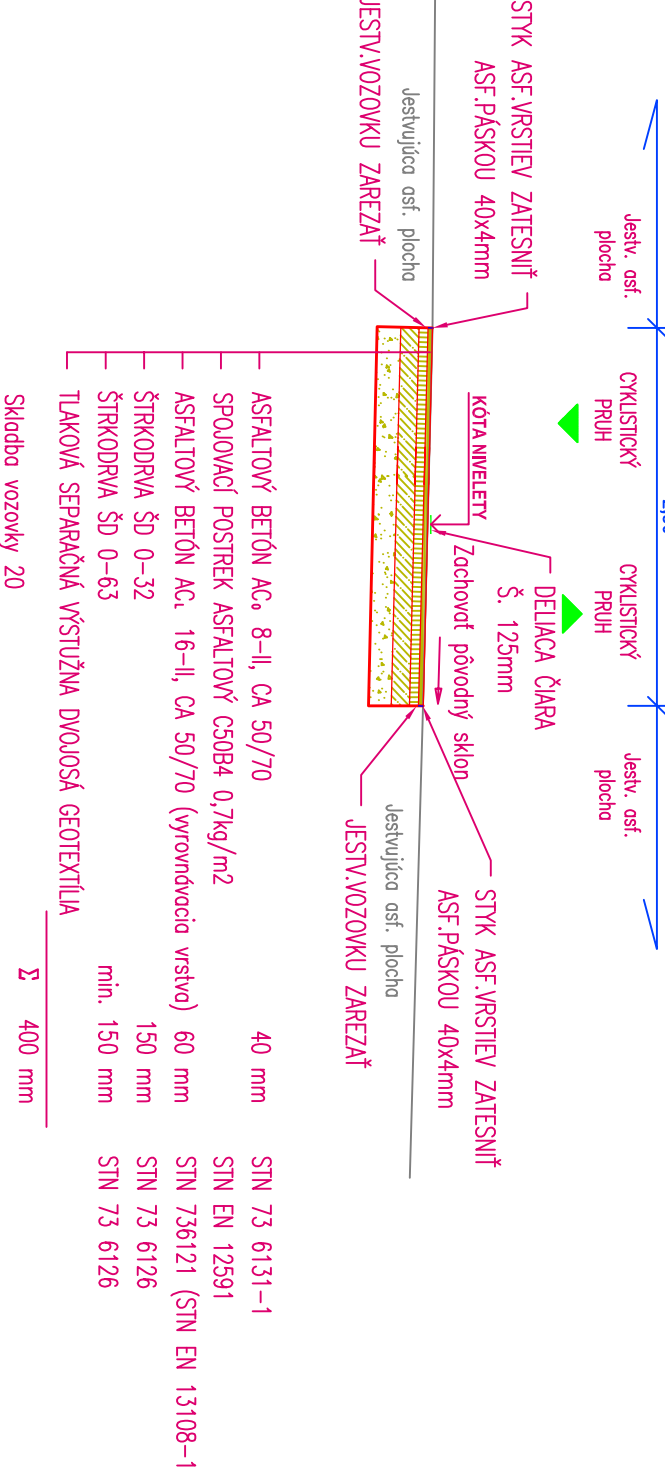 Jestv. asf.
plocha
CYKLISTICKÝ
PRUH
CYKLISTICKÝ
PRUH
Jestv. asf.
plocha
STYK ASF.VRSTIEV ZATESNIŤ
ASF.PÁSKOU 40x4mm
DELIACA ČIARA
Š. 125mm
KÓTA NIVELETY
Zachovať pôvodný sklon
STYK ASF.VRSTIEV ZATESNIŤ
ASF.PÁSKOU 40x4mm
Jestvujúca asf. plocha
JESTV.VOZOVKU ZAREZAŤ
Jestvujúca asf. plocha
JESTV.VOZOVKU ZAREZAŤ
ASFALTOVÝ BETÓN ACₒ 8-II, CA 50/70 40 mm STN 73 6131-1
SPOJOVACÍ POSTREK ASFALTOVÝ C50B4 0,7kg/m2 STN EN 12591
ASFALTOVÝ BETÓN AC_L 16-II, CA 50/70 (vyrovnávacia vrstva) 60 mm STN 736121 (STN EN 13108-1
ŠTRKODRVA ŠD 0-32 150 mm STN 73 6126
ŠTRKODRVA ŠD 0-63 min. 150 mm STN 73 6126
TLAKOVÁ SEPARAČNÁ VÝSTUŽNA DVOJOSÁ GEOTEXTÍLIA
Σ 400 mm
Skladba vozovky 20